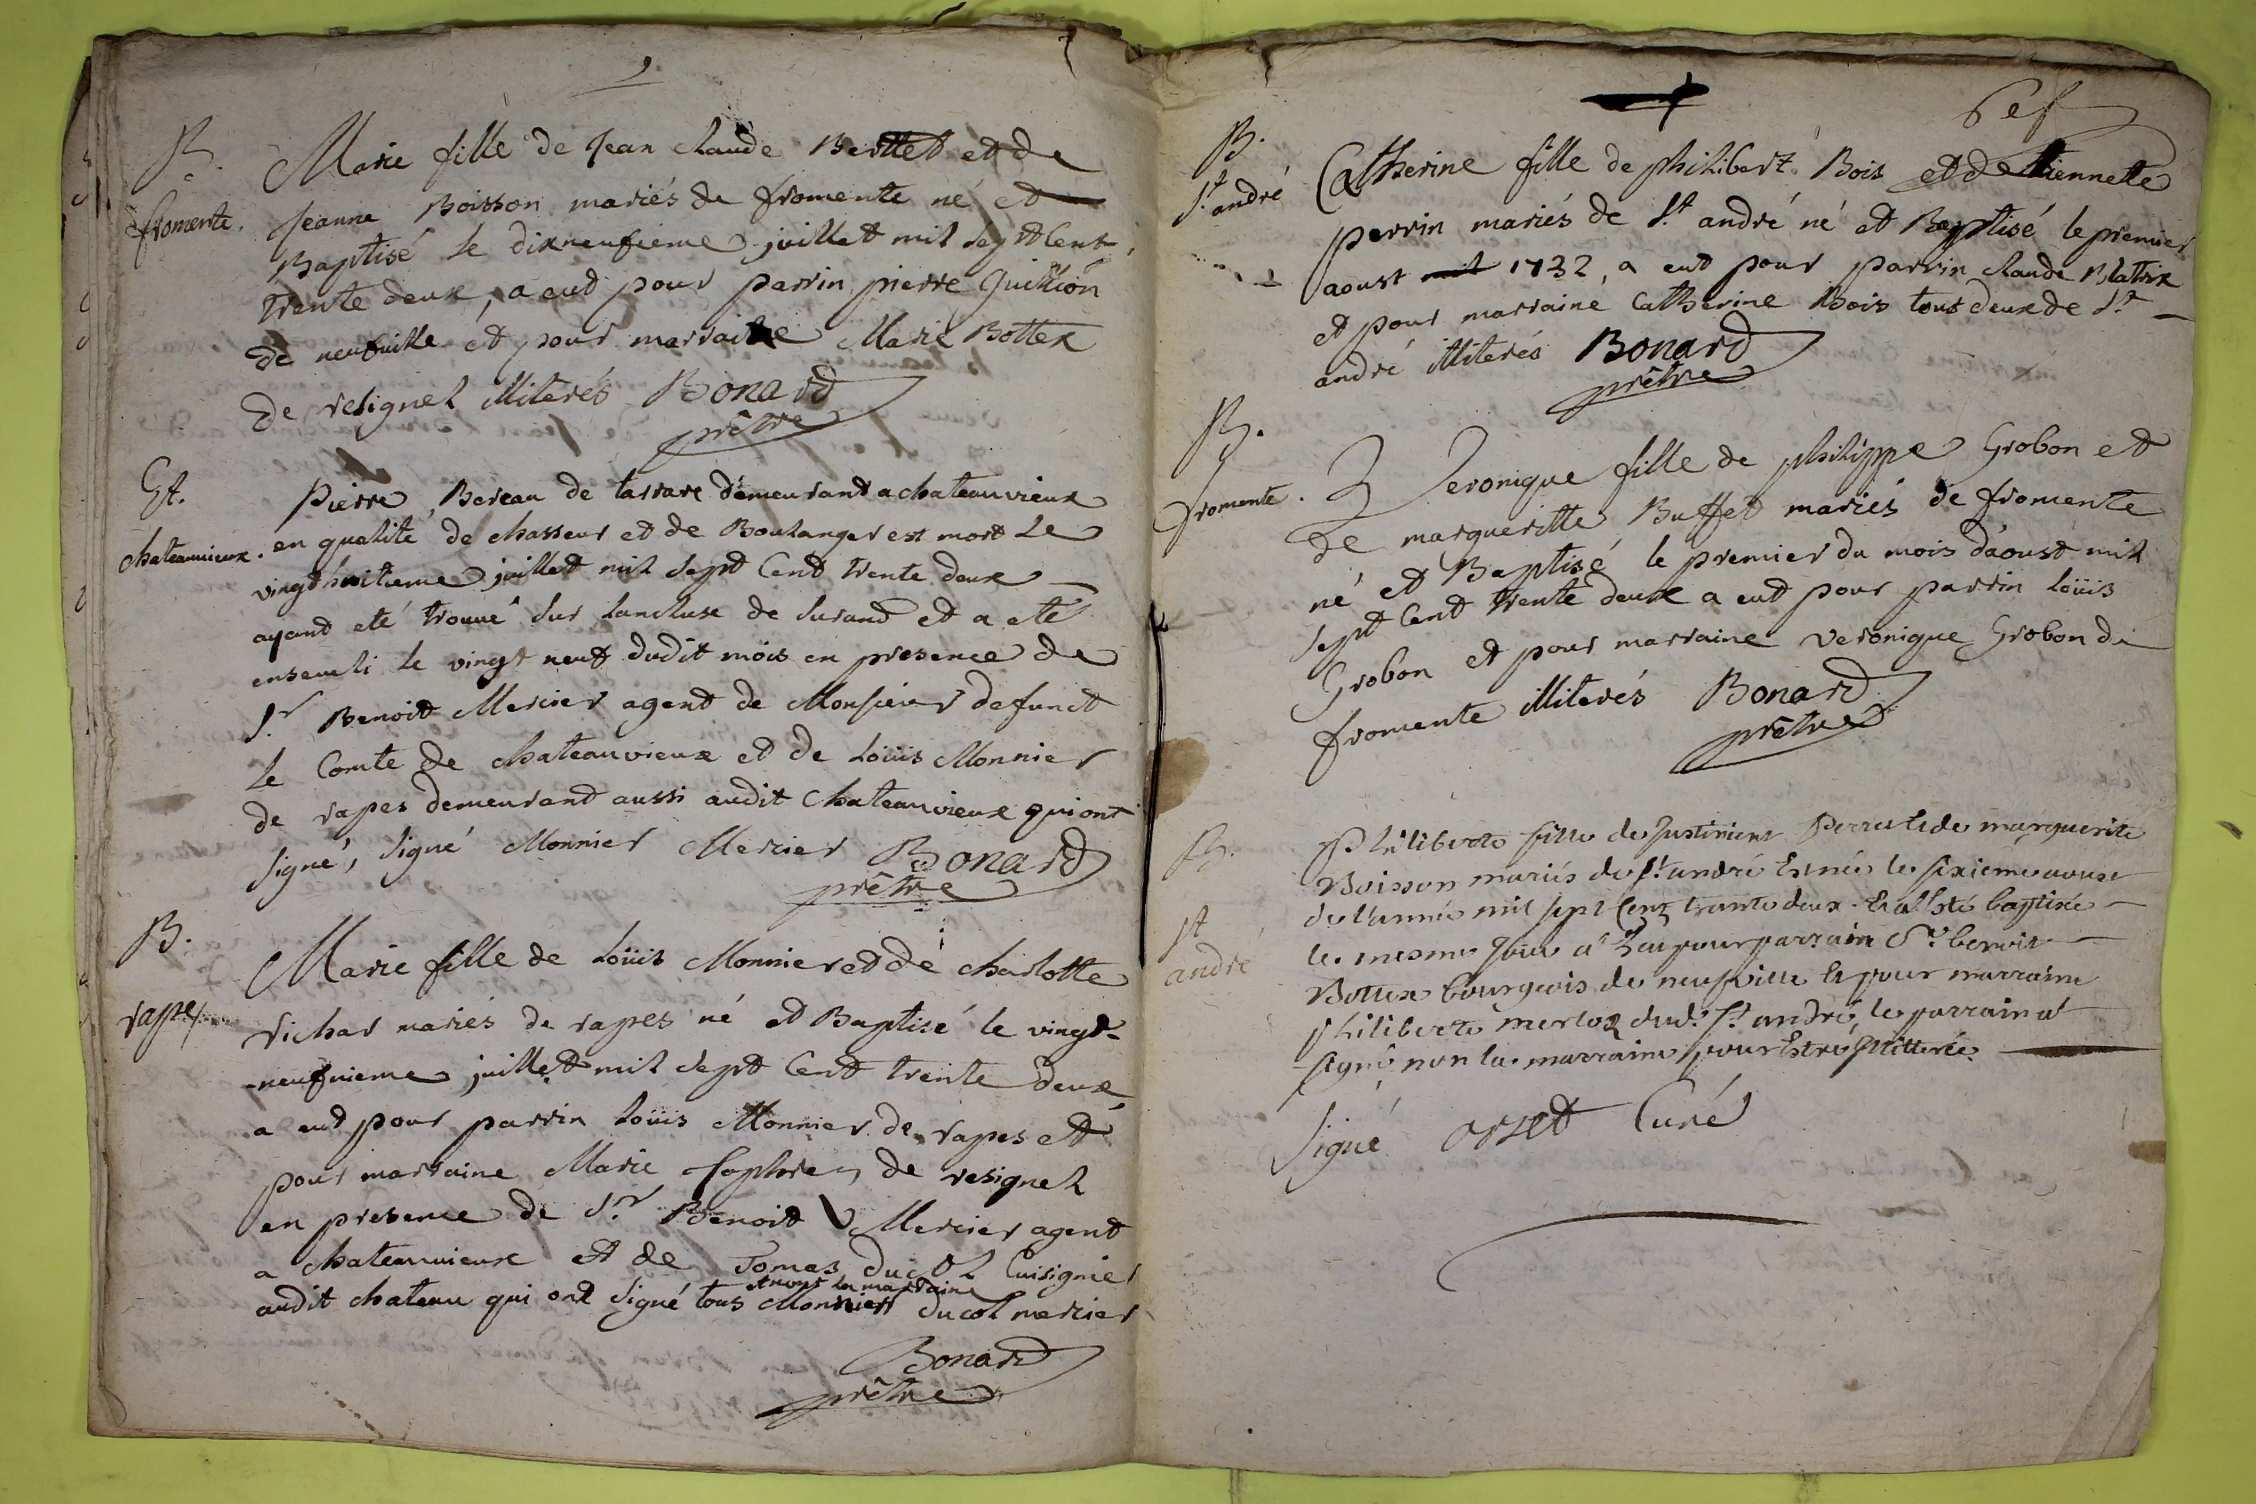 B.
fromente.
Marie fille de Jean claude Berttet et de
Jeanne Boisson mariés de fromente né et
Baptisé le dixneufieme juillet mil sept Cent
trente deux, a eud pour parrin pierre Guillion
de neufville et pour marraine Marie Bottex
de relignel illiterés Bonard
prêtre
Et.
chateauvieux.
pierre Bereau de tarrare demeurand a chateauvieux
en qualité de chasseur et de Boulanger est mort le
vingthuitieme juillet mil sept Cend trente deux
ayand eté trouué sur lancluse de Surand et a eté
enseueli le vingt neuf dudit mois en presence de
Sr Benoit Mercier agent de Monsieur defunct
le Comte de chateauvieux et de Loüis Monnier
de rapes demeurand aussi audit Chateauvieux qui ont
signé, signé Monnier Mercier Bonard
prêtre
B.
rapes
Marie fille de Loüis Monnier et de charlotte
richar mariés de rapes né et Baptisé le vingt
neufuieme juillet mil sept Cend trente deux
a eud pour parrin Loüis Monnier de rapes et
pour marraine Marie de resignel
en presence de Sr Benoit Mercier agent
a chateauvieux et de Tomas Ducol Cuisignier
et nont la marraine
audit chateau qui ont signé tous Monnier Ducol mercier
Bonard
prêtre
6e f
B.
St andré
Catherine fille de philibert Bois et d Etiennette
perrin mariés de St andré né et Baptisé le premier
aoust mil 1732, a eud pour parrin claude Blatrix
et pour marraine Catherine Bois tous deux de St
andré illiterés Bonard
prêtre
B.
fromente.
Veronique fille de philippe Grobon et
de margueritte Buffet mariés de fromente
né et Baptisé le premier du mois d'aoust mil
sept Cend trente deux a eud pour parrin loüis
Grobon et pour marraine veronique Grobon de
fromente illiterés Bonard
prêtre
B.
St
andré
Philiberte fille de Justinient Perret et de marguerite
Boisson mariés de St andré Est née le sixieme aoust
de l'année mil sept Cent trante deux Et a Esté baptisée
le mesme Jour a Heu pour parrain Sr benoit
Bottex bourgeois de neufville et pour marraine
philiberte merloz dud. St andré, le parrain a
signé non la marraine pour Estre Jllitterée.
Signé orset Curé